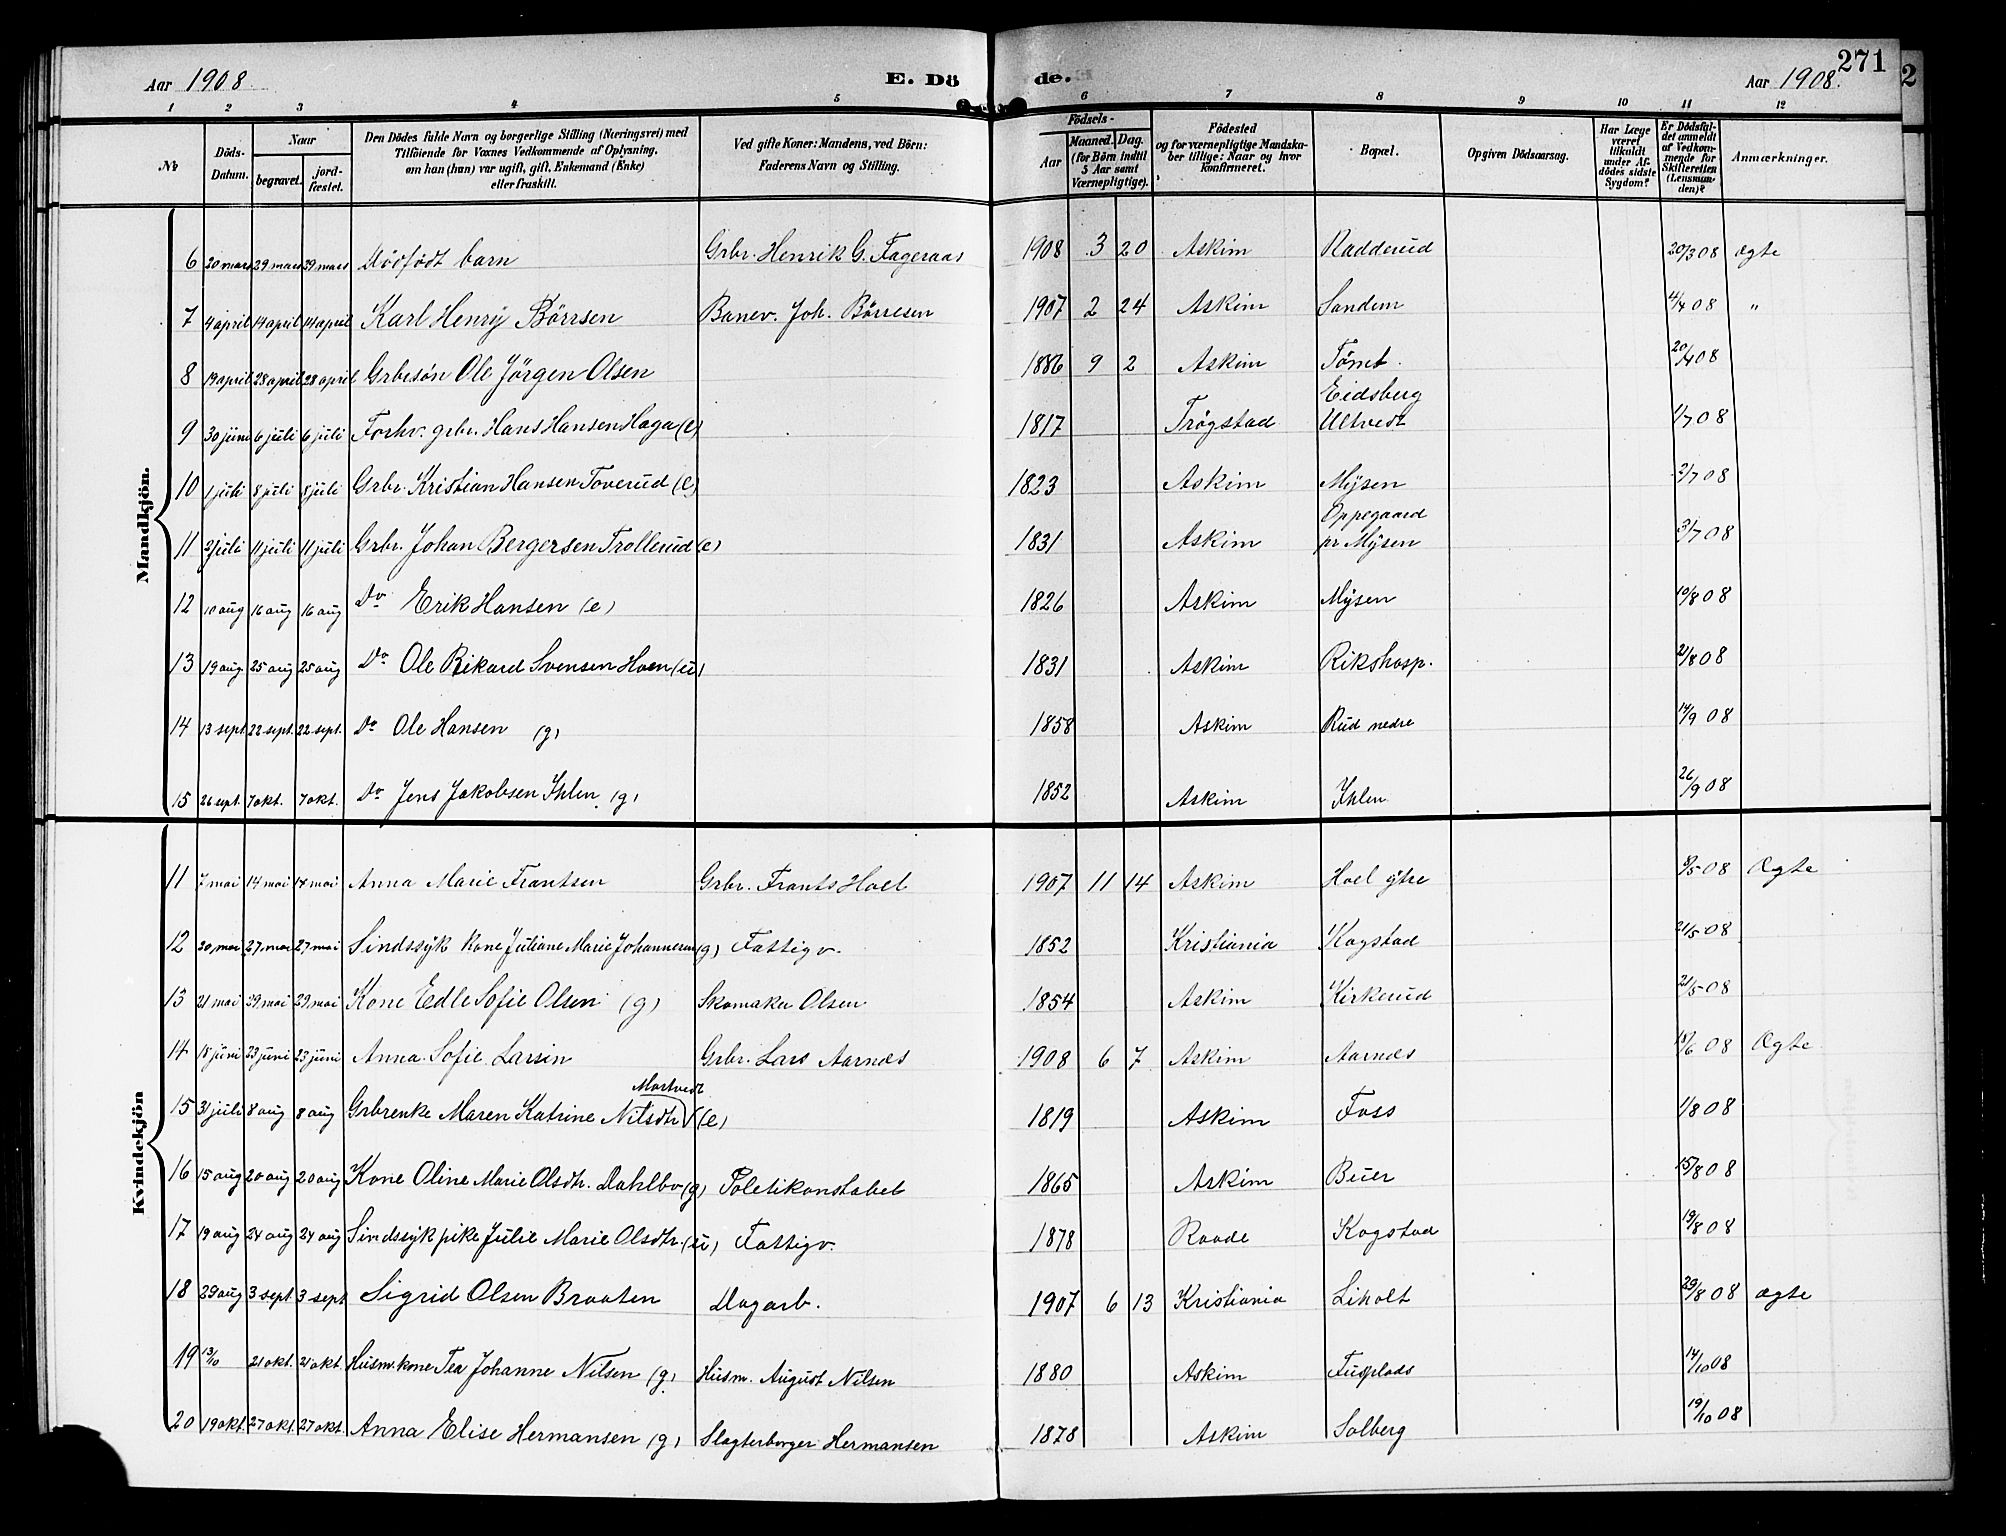 271
Aar 1908. E. Dö de. Aar 1908. 2
1 2 3 4 5 6 7 8 9 10 11 12
No
Döds-Datum.
Naar
begravet.
jord-fæstet.
Den Dödes fulde Navn og borgerlige Stilling (Næringsvei) med
Tilföiende for Voxnes Vedkommende af Oplysning,
om han (hun) var ugift, gift, Enkemand (Enke)
eller fraskilt.
Ved gifte Koner: Mandens, ved Börn:
Faderens Navn og Stilling.
Födsels-
Aar
Maaned. Dag.
(for Börn indtil
5 Aar samt
Værnepligtige).
Födested
og for værnepligtige Mandska-
ber tillige: Naar og hvor
konfirmeret.
Bopæl.
Opgiven Dödsaarsag.
Har Læge
været
tilkaldt
under Af-
dödes sidste
Sygdom?
Er Dödsfal-
det anmeldt
af Vedkom-
mende for
Skifteretten
(Lensman-
den)?
Anmærkninger.
Mandkjön.
6 20 mars 29 mars 29 mars Dödfödt barn Grbr. Henrik G. Fageraas 1908 3 20 Askim Radderud 20/3 08 Ægte
7 4 april 14 april 14 april Karl Henry Börrsen Banev. Joh. Börresen 1907 2 24 Askim Sandem 4/4 08 "
8 19 april 28 april 28 april Grbesön Ole Jörgen Olsen 1886 9 2 Askim Tömt. 20/4 08
9 30 juni 6 juli 6 juli Forhv. grbr. Hans Hansen Haga (e) 1817 Trögstad Eidsberg
Ultvedt 1/7 08
10 1 juli 8 juli 8 juli Grbr. Kristian Hansen Toverud (e) 1823 Askim Mysen 2/7 08
11 2 juli 11 juli 11 juli Grbr. Johan Bergersen Trollerud (e) 1831 Askim Oppegaard
pr Mysen 3/7 08
12 10 aug 16 aug 16 aug Do Erik Hansen (e) 1826 Askim Mysen 10/8 08
13 19 aug 25 aug 25 aug Do Ole Rikard Svensen Hoen (u) 1831 Askim Rikshosp. 21/8 08
14 13 sept 22 sept. 22 sept. Do Ole Hansen (g) 1858 Askim Rud nedre 14/9 08
15 26 sept. 7 okt. 7 okt. Do Jens Jakobsen Ihlen (g) 1852 Askim Ihlen 26/9 08
Kvindekjön
11 7 mai 14 mai 14 mai Anna Marie Frantsen Grbr. Frants Hoel 1907 11 14 Askim Hoel ytre 8/5 08 Ægte
12 20 mai 27 mai 27 mai Sindssyk kone Juliane Marie Johannesen (g) Fattigv. 1852 Kristiania Kogstad 21/5 08
13 21 mai 29 mai 29 mai Kone Edle Sofie Olsen (g) Skomaker Olsen 1854 Askim Kirkerud 21/5 08
14 18 juni 23 juni 23 juni Anna Sofie Larsin Grbr. Lars Aarnæs 1908 6 7 Askim Aarnæs 18/6 08 Ægte
15 31 juli 8 aug 8 aug Grbrenke Maren Katrine Nilsdtr Mortvedt (e) 1819 Askim Foss 1/8 08
16 15 aug 20 aug 20 aug Kone Oline Marie Olsdtr. Dahlbo (g) Poletikonstabel 1865 Askim Buer 15/8 08
17 19 aug 24 aug 24 aug Sindssyk pike Julie Marie Olsdtr. (u) Fattigv. 1878 Raade Kogstad 19/8 08
18 29 aug 3 sept 3 sept Sigrid Olsen Braaten Dagarb. 1907 6 13 Kristiania Liholt 29/8 08 Ægte
19 13/10 21 okt. 21 okt. Husm. kone Tea Johanne Nilsen (g) Husm. August Nilsen 1880 Askim 14/10 08
20 19 okt. 27 okt. 27 okt. Anna Elise Hermansen (g) Slagterborger Hermansen 1878 Askim Solberg 19/10 08